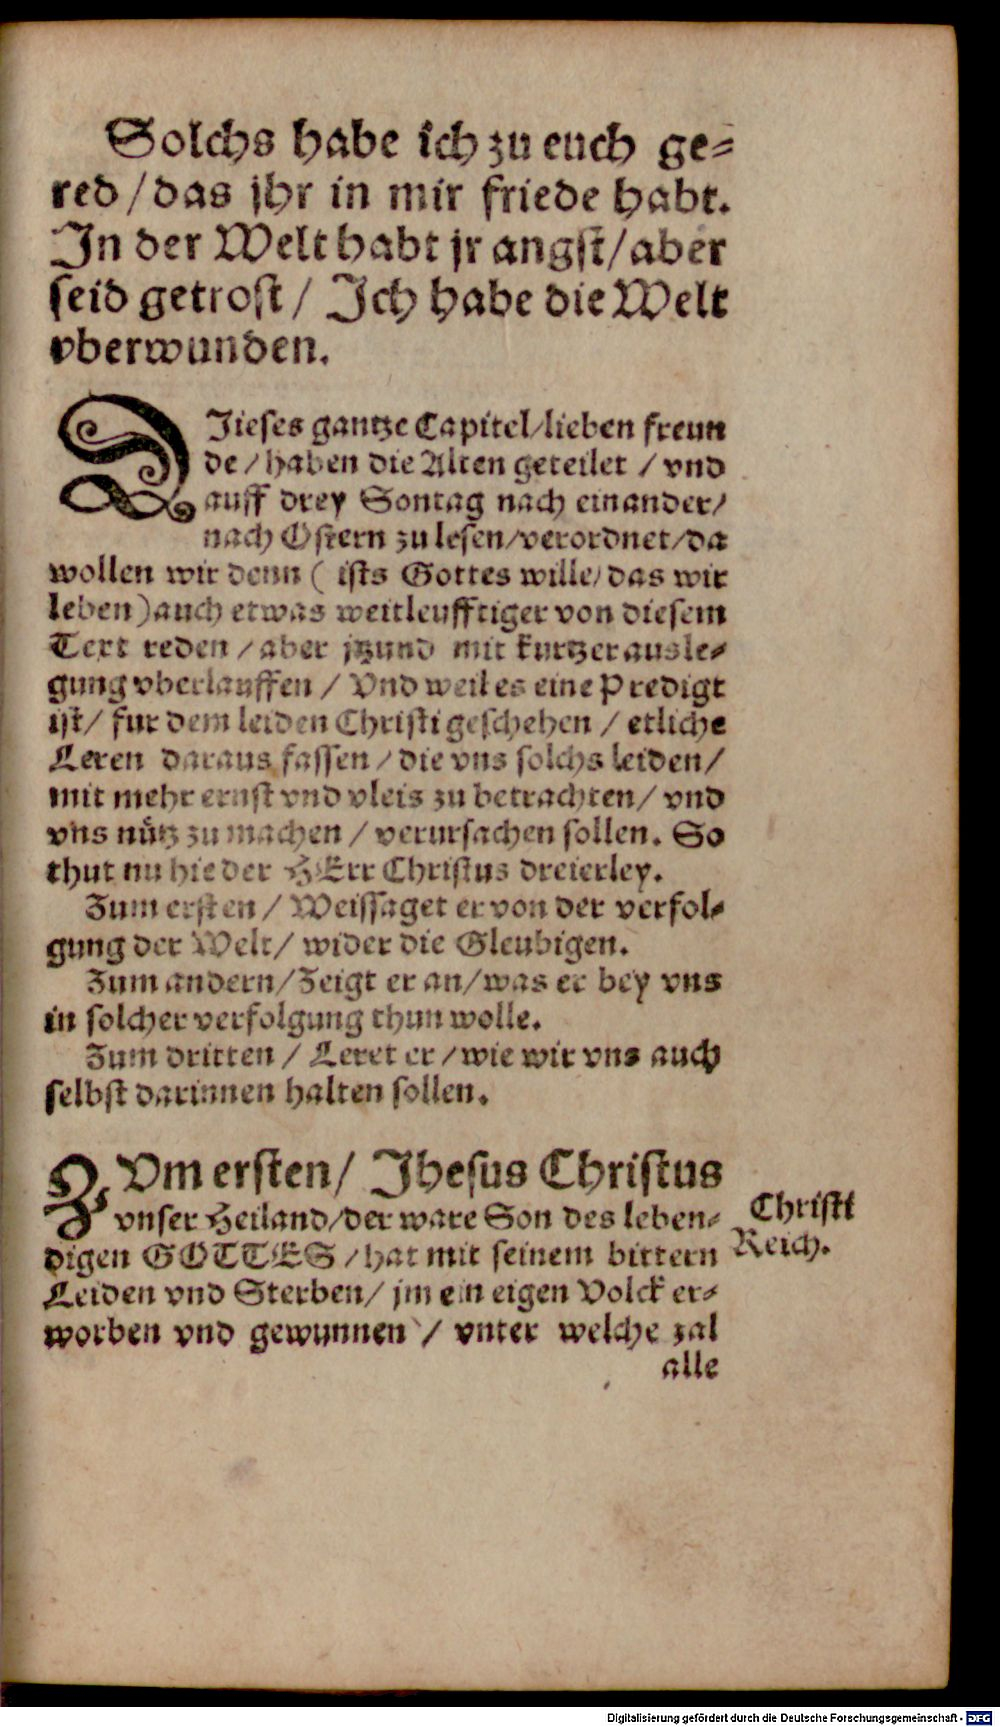 Solchs habe ich zu euch ge⸗
red / das jhr in mir friede habt.
In der Welt habt jr angst / aber
seid getrost / Ich habe die Welt
vberwunden.
DIeses gantze Capitel / lieben freun
de / haben die Alten geteilet / vnd
auff drey Sontag nach einander /
nach Ostern zu lesen / verordnet / da
wollen wir denn ( ists Gottes wille / das wir
leben ) auch etwas weitleufftiger von diesem
Text reden / aber jtzund mit kurtzer ausle⸗
gung vberlauffen / Vnd weil es eine Predigt
ist / fur dem leiden Christi geschehen / etliche
Leren daraus fassen / die vns solchs leiden /
mit mehr ernst vnd vleis zu betrachten / vnd
vns nuͤtz zu machen / verursachen sollen. So
thut nu hie der HErr Christus dreierley.
Zum ersten / Weissaget er von der verfol⸗
gung der Welt / wider die Gleubigen.
Zum andern / Zeigt er an / was er bey vns
in solcher verfolgung thun wolle.
Zum dritten / Leret er / wie wir vns auch
selbst darinnen halten sollen.
ZVm ersten / Jhesus Christus
vnser Heiland / der ware Son des leben⸗
digen GOTTES / hat mit seinem bittern
Leiden vnd Sterben / jm ein eigen Volck er⸗
worben vnd gewunnen / vnter welche zal
alle
Christi
Reich.
Digitalisierung gefördert durch die Deutsche Forschungsgemeinschaft - DFG